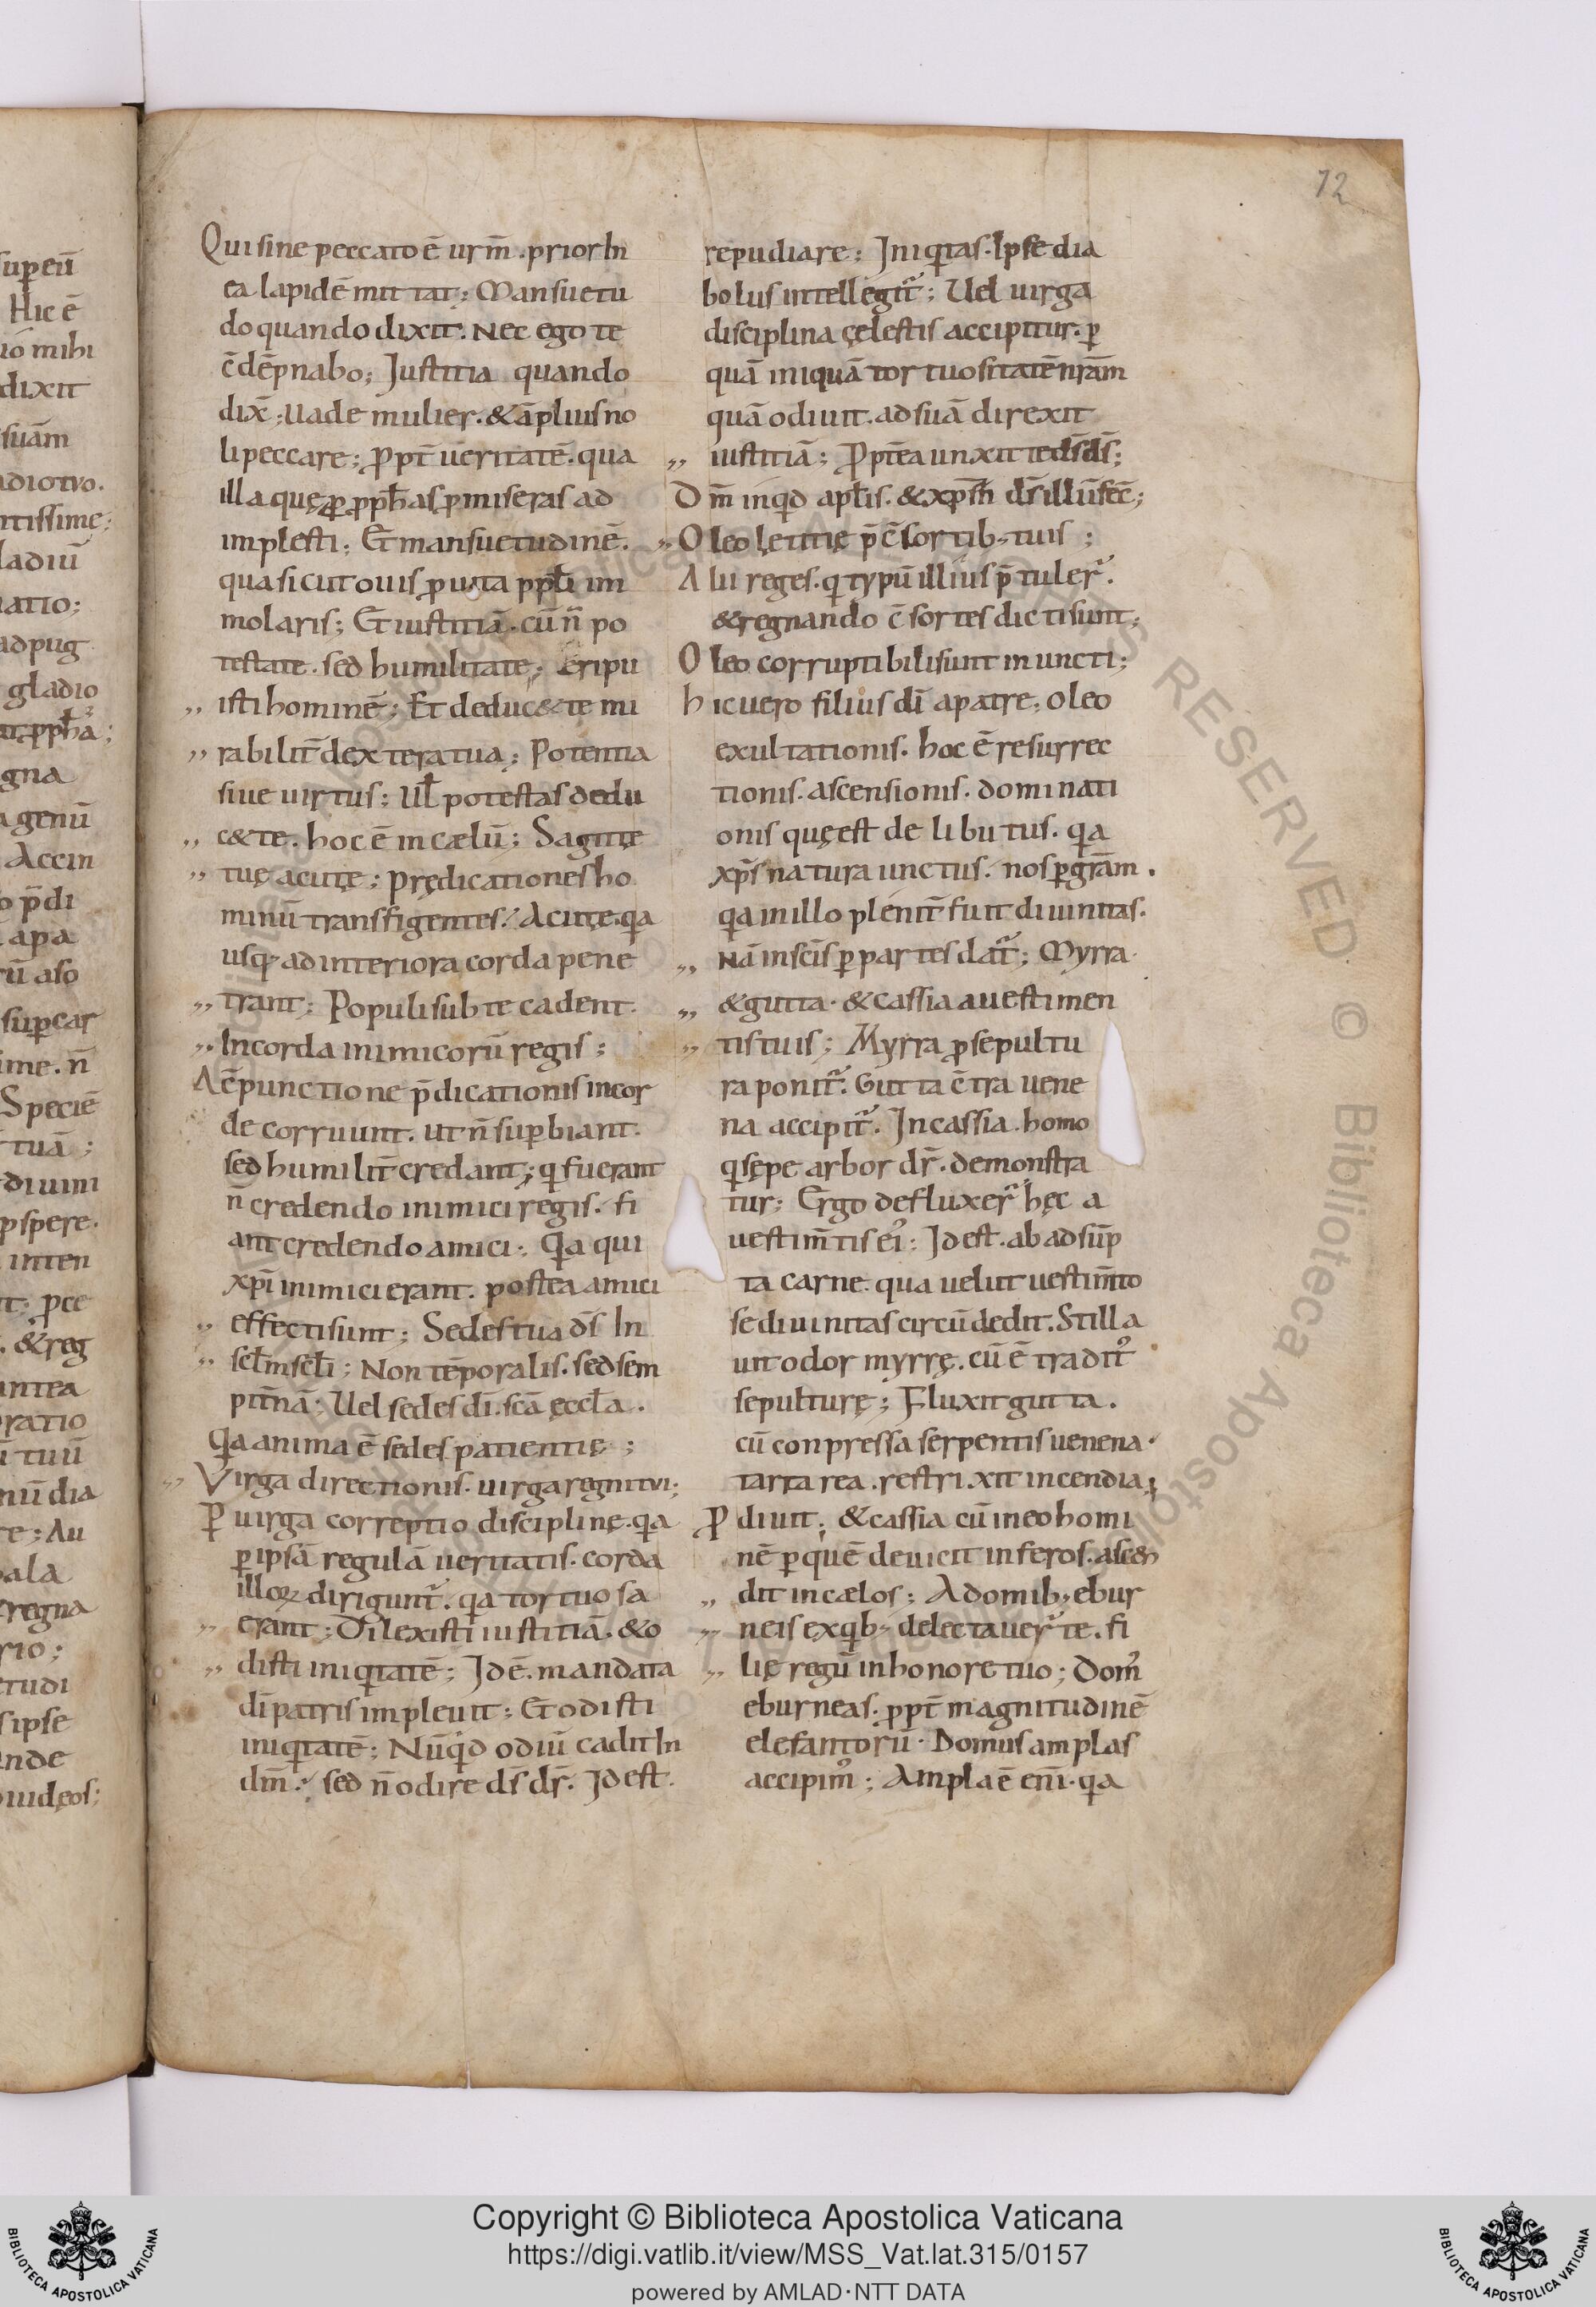 12
Qui sine peccato ē urm̄. prior In
ea lapidē mittat; Mansuetu
do quando dixit. Nec ego te
c̄dēpnabo; Justitia quando
dix̄; uade mulier. & āplius no
li peccare; ꝓpt̄ ueritatē. qua
illa quę ꝓ ꝓph̄as ꝓmiseras ad
implesti; Et mansuetudinē.
qua sicut ouis ꝓ uita ppl̄i im
molaris; Et iustitiā. cū n̄ po
testate. sed humilitate; Eripu
„ isti hominē; Et deduc& te mi
„ rabilit̄ dextera tua; Potentia
siue uirtus; Ul̄ potestas dedu
„ c& te. hoc ē in cælū; Sagittę
„ tuę acutę; Prędicationes ho
minū transfigentes. Acutę. qa
usq; ad interiora corda pene
„ trant; Populi sub te cadent.
„ In corda inimicorū regis;
A c̄punctione p̄dicationis in cor
de corruunt. ut n̄ suꝑbiant.
sed humilit̄ credant; q fuerant
n̄ credendo inimici regis. fi
ant credendo amici; Qa qui
xp̄i inimici erant. postea amici
„ effecti sunt; Sedes tua d̄s In
„ scl̄m scl̄i; Non tēporalis. sed sem
pit̄nā; Uel sedes dī. scā ęccl̄a.
Qa anima ē sedes patientię;
„ Virga directionis. uirga regni tvi;
P̄ uirga correptio disciplinę. qa
ꝑ ipsā regulā ueritatis. corda
illoꝝ dirigunt̄. qa tortuosa
„ erant; Dilexisti iustitiā. & o
„ disti iniqtatē; Jd ē. mandata
dī patris impleuit; Et odisti
iniqtatē; Nūqd odiū cadit In
dm̄. sed n̄ odire d̄s dr̄. Jd est.
repudiare; Jniqtas. Ipse dia
bolus intellegit̄; Uel uirga
disciplina cęlestis accipitur. ꝑ
quā iniquā tortuositatē nrām
quā odiuit. ad suā direxit
„ iustitiā; Propt̄ea unxit te d̄s d̄s;
D m̄ inqd apl̄is. & xpm̄ d̄s illū fec̄;
„ Oleo lętitię p̄ c̄sortib; tuis;
Alii reges. q typū illius p̄tuler̄.
& regnando c̄sortes dicti sunt;
Oleo corruptibili sunt inuncti;
hic uero filius dī a patre. oleo
exultationis. hoc ē resurrec
tionis. ascensionis. dominati
onis quę est de libutus. qa
xp̄s natura unctus. nos ꝑ grām.
qa in illo plenit̄ fuit diuinitas.
„ Nā in sc̄is ꝑ partes dat̄; Myrra
„ & gutta. & cassia a uestimen
„ tis tuis; Myrra ꝓ sepultu
ra ponit̄. Gutta c̄tra uene
na accipit̄. Jn cassia. homo
q sępe arbor dr̄. demonstra
tur; Ergo defluxer̄ hęc a
uestim̄tis ei᾽; Jd est. ab adsūp
ta carne. qua uelut uestim̄to
se diuinitas circūdedit. Stilla
uit odor myrrę. cū ē tradit᾽
sepulturę; Fluxit gutta.
cū conpressa serpentis uenena.
tartarea. restri.xit incendia;
P̄diuit; & cassia cū in eo homi
nē ꝑ quē deuicit inferos. ascen
„ dit in cælos; A domib; ebur
„ neis ex qb; delectauer̄ te. fi
„ lię regū in honore tuo; Dom᾽
eburneas. ꝓpt̄ magnitudinē
elefantorū. Domus amplas
accipim᾽; Ampla ē eni̅. qa
Copyright © Biblioteca Apostolica Vaticana
https://digi.vatlib.it/view/MSS_Vat.lat.315/0157
powered by AMLAD·NTT DATA